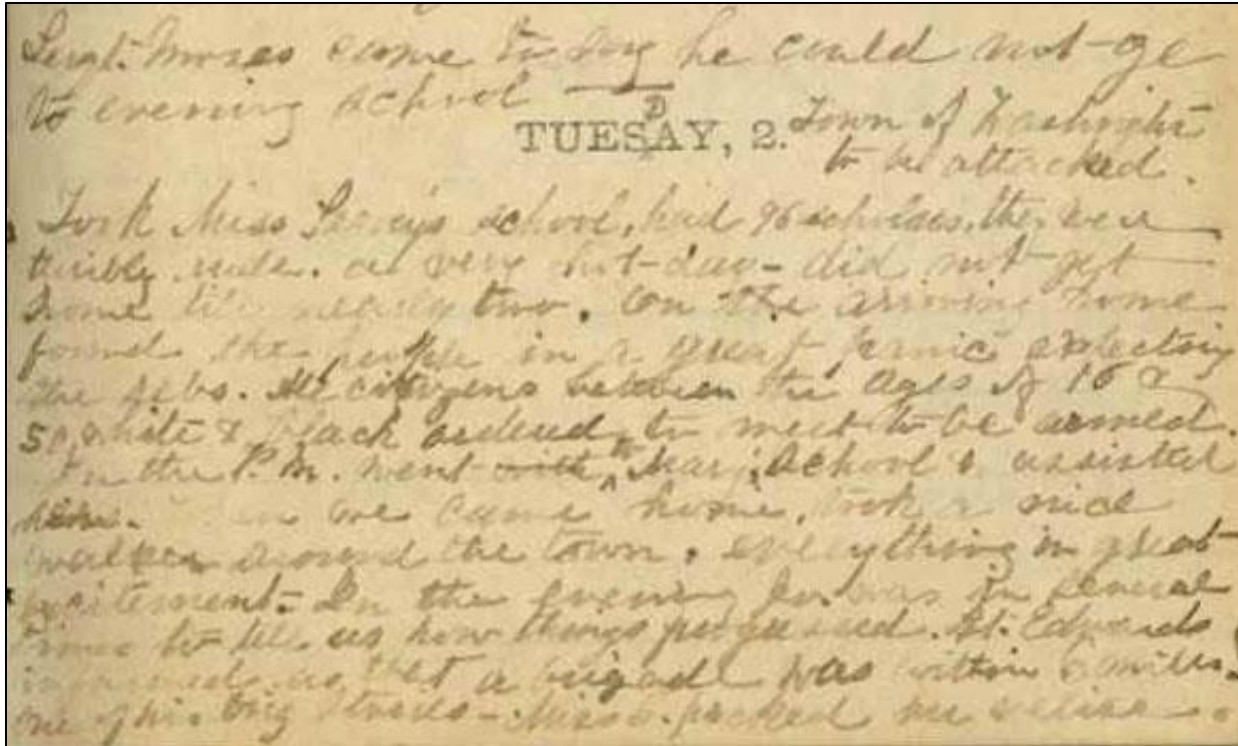 Sergt. Moses came to say he could not go
to evening school
TUESDAY, 2. Town of
to be attacked.
Took Miss school, had 96 scholars, they were
terribly rude. a very hot day - did not get
home till nearly two. On the arriving home
found the people in a great panic expecting
the rebs. All citizens between the ages of 16 &
50, white & black ordered to meet to be armed.
In the P.M. went with to Mary's school & assisted
. we came home, took a nice
around the town. everything in great
excitement - In the evening was in several
times to tell us how things progressed. Lt. Edwards
informed us that a brigade was within miles.
one of his big - Miss packed